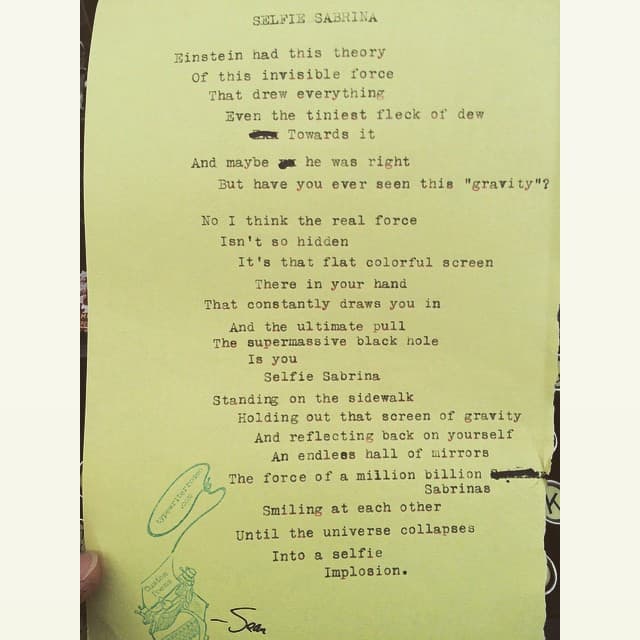 SELFIE SABRINA
Einstein had this theory
Of this invisible force
That drew everything
Even the tiniest fleck of dew
Towards it
And maybe he was right
But have you ever seen this "gravity"?
No I think the real force
Isn't so hidden
It's that flat colorful screen
There in your hand
That constantly draws you in
And the ultimate pull
The supermassive black hole
Is you
Selfie Sabrina
Standing on the sidewalk
Holding out that screen of gravity
And reflecting back on yourself
An endless hall of mirrors
The force of a million billion
Sabrinas
Smiling at each other
Until the universe collapses
Into a selfie
Implosion.
Custom
Poems
K